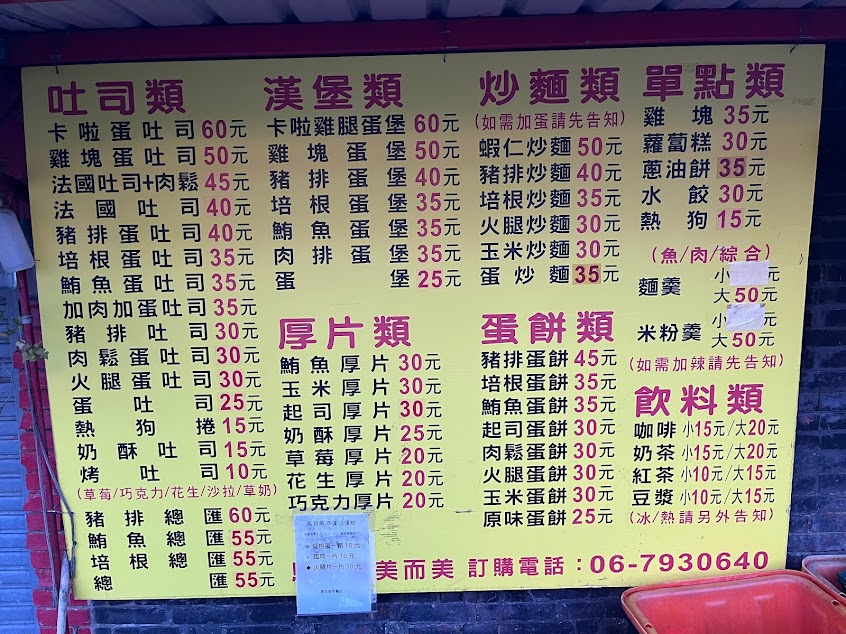 吐司類
卡啦蛋吐司60元
雞塊蛋吐司50元
法國吐司+肉鬆45元
法國吐司40元
豬排蛋吐司40元
培根蛋吐司35元
鮪魚蛋吐司35元
加肉加蛋吐司35元
豬排吐司30元
肉鬆蛋吐司30元
火腿蛋吐司30元
蛋吐司25元
熱狗捲15元
奶酥吐司15元
烤吐司10元
(草莓/巧克力/花生/沙拉/草奶)
豬排總匯60元
鮪魚總匯55元
培根總匯55元
總匯55元
漢堡類
卡啦雞腿蛋堡60元
雞塊蛋堡50元
豬排蛋堡40元
培根蛋堡35元
鮪魚蛋堡35元
肉排蛋堡35元
蛋堡25元
厚片類
鮪魚厚片30元
玉米厚片30元
起司厚片30元
奶酥厚片25元
草莓厚片20元
花生厚片20元
巧克力厚片20元
炒麵類
(如需加蛋請先告知)
蝦仁炒麵50元
豬排炒麵40元
培根炒麵35元
火腿炒麵30元
玉米炒麵30元
蛋炒麵35元
蛋餅類
豬排蛋餅45元
培根蛋餅35元
鮪魚蛋餅35元
起司蛋餅30元
肉鬆蛋餅30元
火腿蛋餅30元
玉米蛋餅30元
原味蛋餅25元
單點類
雞塊35元
蘿蔔糕30元
蔥油餅35元
水餃30元
熱狗15元
(魚/肉/綜合)
麵羹 小 元
大50元
米粉羹 小 元
大50元
(如需加辣請先告知)
飲料類
咖啡 小15元/大20元
奶茶 小15元/大20元
紅茶 小10元/大15元
豆漿 小10元/大15元
(冰/熱請另外告知)
美而美 訂購電話：06-7930640